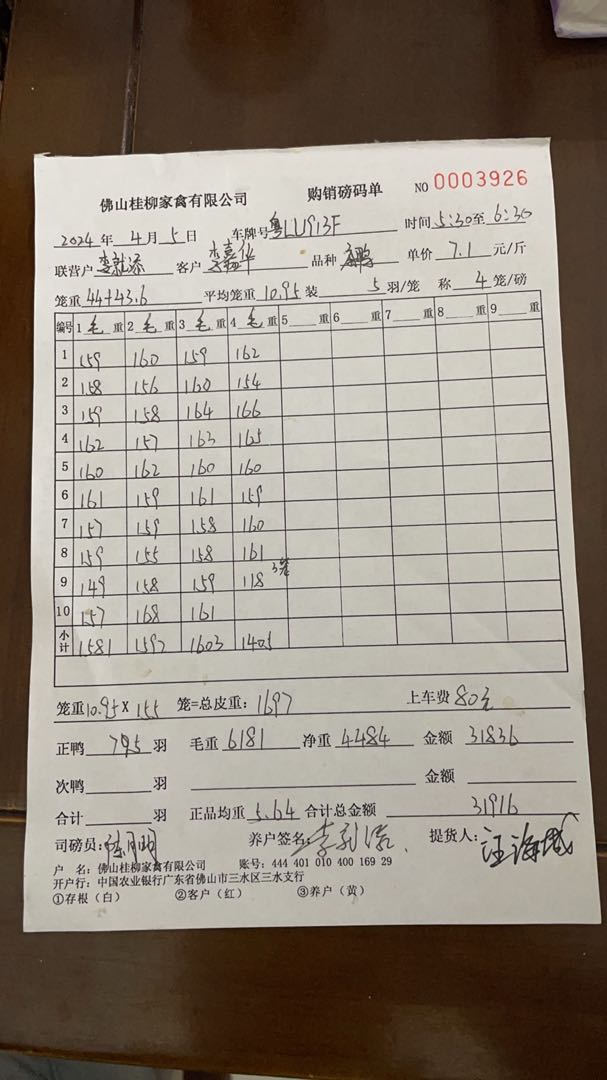 佛山桂柳家禽有限公司 购销磅码单 NO 0003926
2024年 4月 5日 车牌号 粤LU913F 时间 5:30至 6:30
联营户 李就添 客户 李嘉华 品种 单价 7.1 元/斤
笼重 44+43.6 平均笼重 10.95 装 5 羽/笼 称 4 笼/磅
编号 1 毛 重 2 毛 重 3 毛 重 4 毛 重 5 重 6 重 7 重 8 重 9 重
1 159 160 159 162
2 158 156 160 154
3 159 158 164 166
4 162 157 163 165
5 160 162 160 160
6 161 159 161 159
7 157 159 158 160
8 159 155 158 161
9 149 158 159 118 3笼
10 157 168 161
小计 1581 1592 1603 1405
笼重 10.95 × 155 笼=总皮重: 1697 上车费 80元
正鸭 795 羽 毛重 6181 净重 4484 金额 31836
次鸭 羽 金额
合计 羽 正品均重 5.64 合计总金额 31916
司磅员: 养户签名: 提货人:
户 名: 佛山桂柳家禽有限公司 账号: 444 401 010 400 169 29
开户行: 中国农业银行广东省佛山市三水区三水支行
①存根（白） ②客户（红） ③养户（黄）